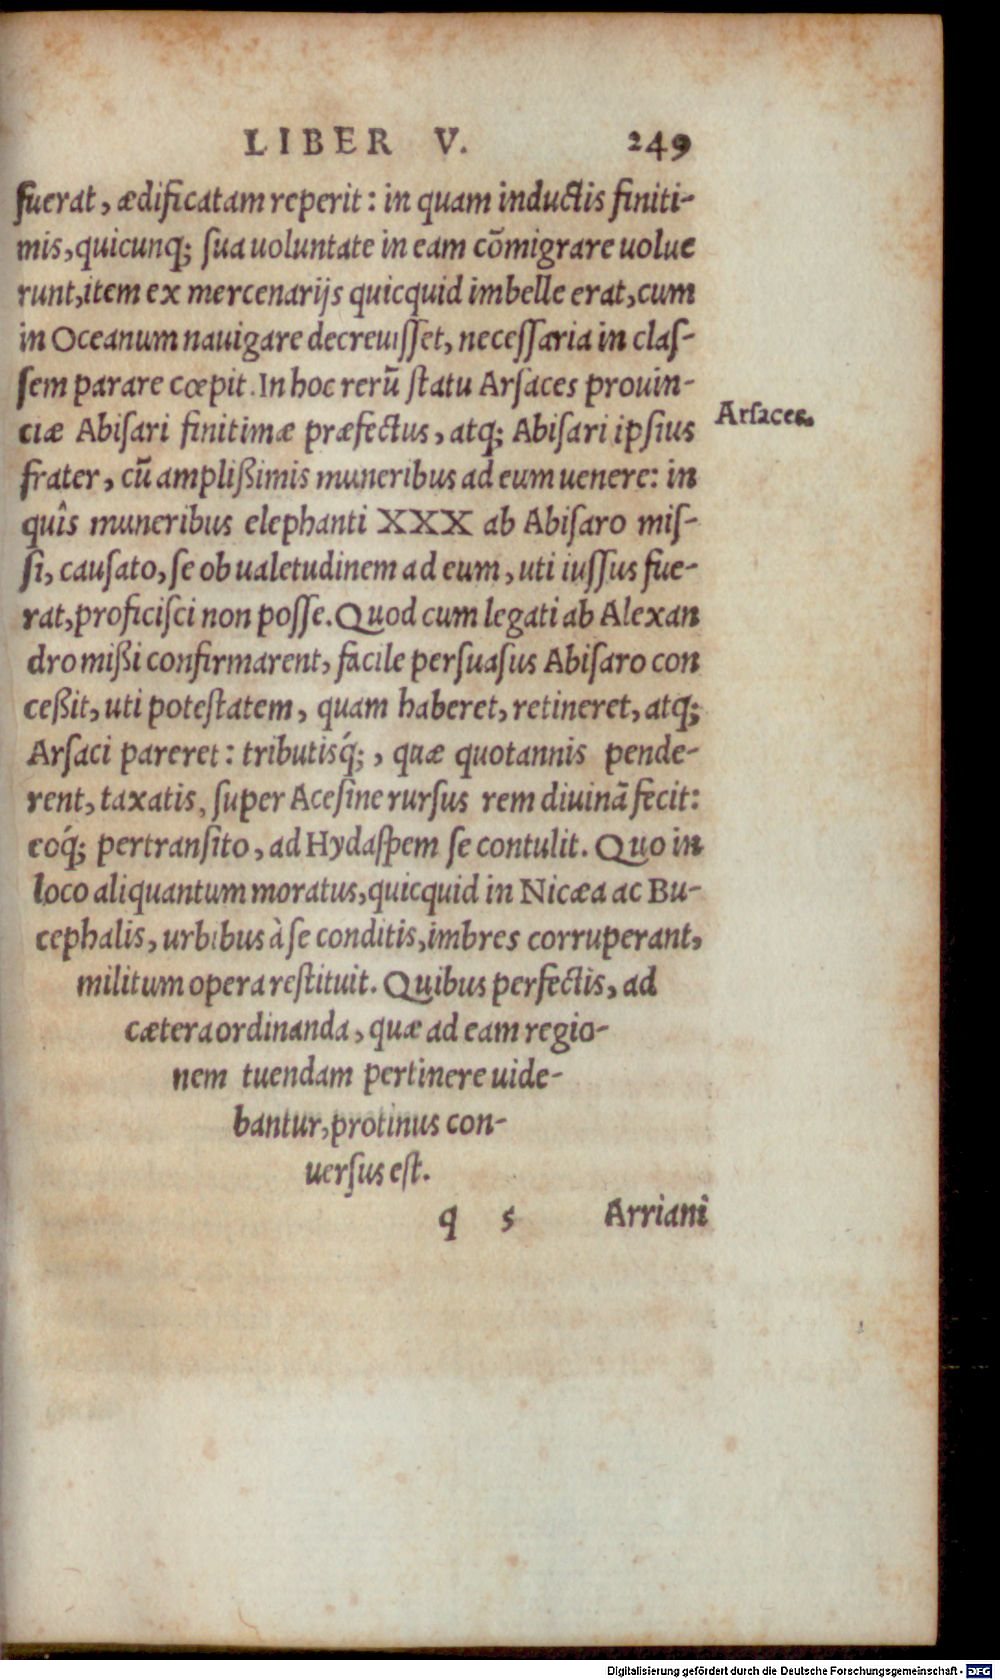 LIBER V. 249
fuerat, ædificatam reperit: in quam inductis finiti-
mis, quicunq; sua uoluntate in eam cōmigrare uolue
runt, item ex mercenarijs quicquid imbelle erat, cum
in Oceanum nauigare decreuisset, necessaria in clas-
sem parare cœpit. In hoc rerū statu Arsaces prouin-
ciæ Abisari finitimæ præfectus, atq; Abisari ipsius
Arsaces.
frater, cū amplißimis muneribus ad eum uenere: in
quîs muneribus elephanti XXX ab Abisaro mis-
si, causato, se ob ualetudinem ad eum, uti iussus fue-
rat, proficisci non posse. Quod cum legati ab Alexan
dro mißi confirmarent, facile persuasus Abisaro con
ceßit, uti potestatem, quam haberet, retineret, atq;
Arsaci pareret: tributisq́;, quæ quotannis pende-
rent, taxatis, super Acesine rursus rem diuinā fecit:
eoq́; pertransito, ad Hydaspem se contulit. Quo in
loco aliquantum moratus, quicquid in Nicæa ac Bu-
cephalis, urbibus à se conditis, imbres corruperant,
militum opera restituit. Quibus perfectis, ad
cætera ordinanda, quæ ad eam regio-
nem tuendam pertinere uide-
bantur, protinus con-
uersus est.
q 5 Arriani
Digitalisierung gefördert durch die Deutsche Forschungsgemeinschaft - DFG